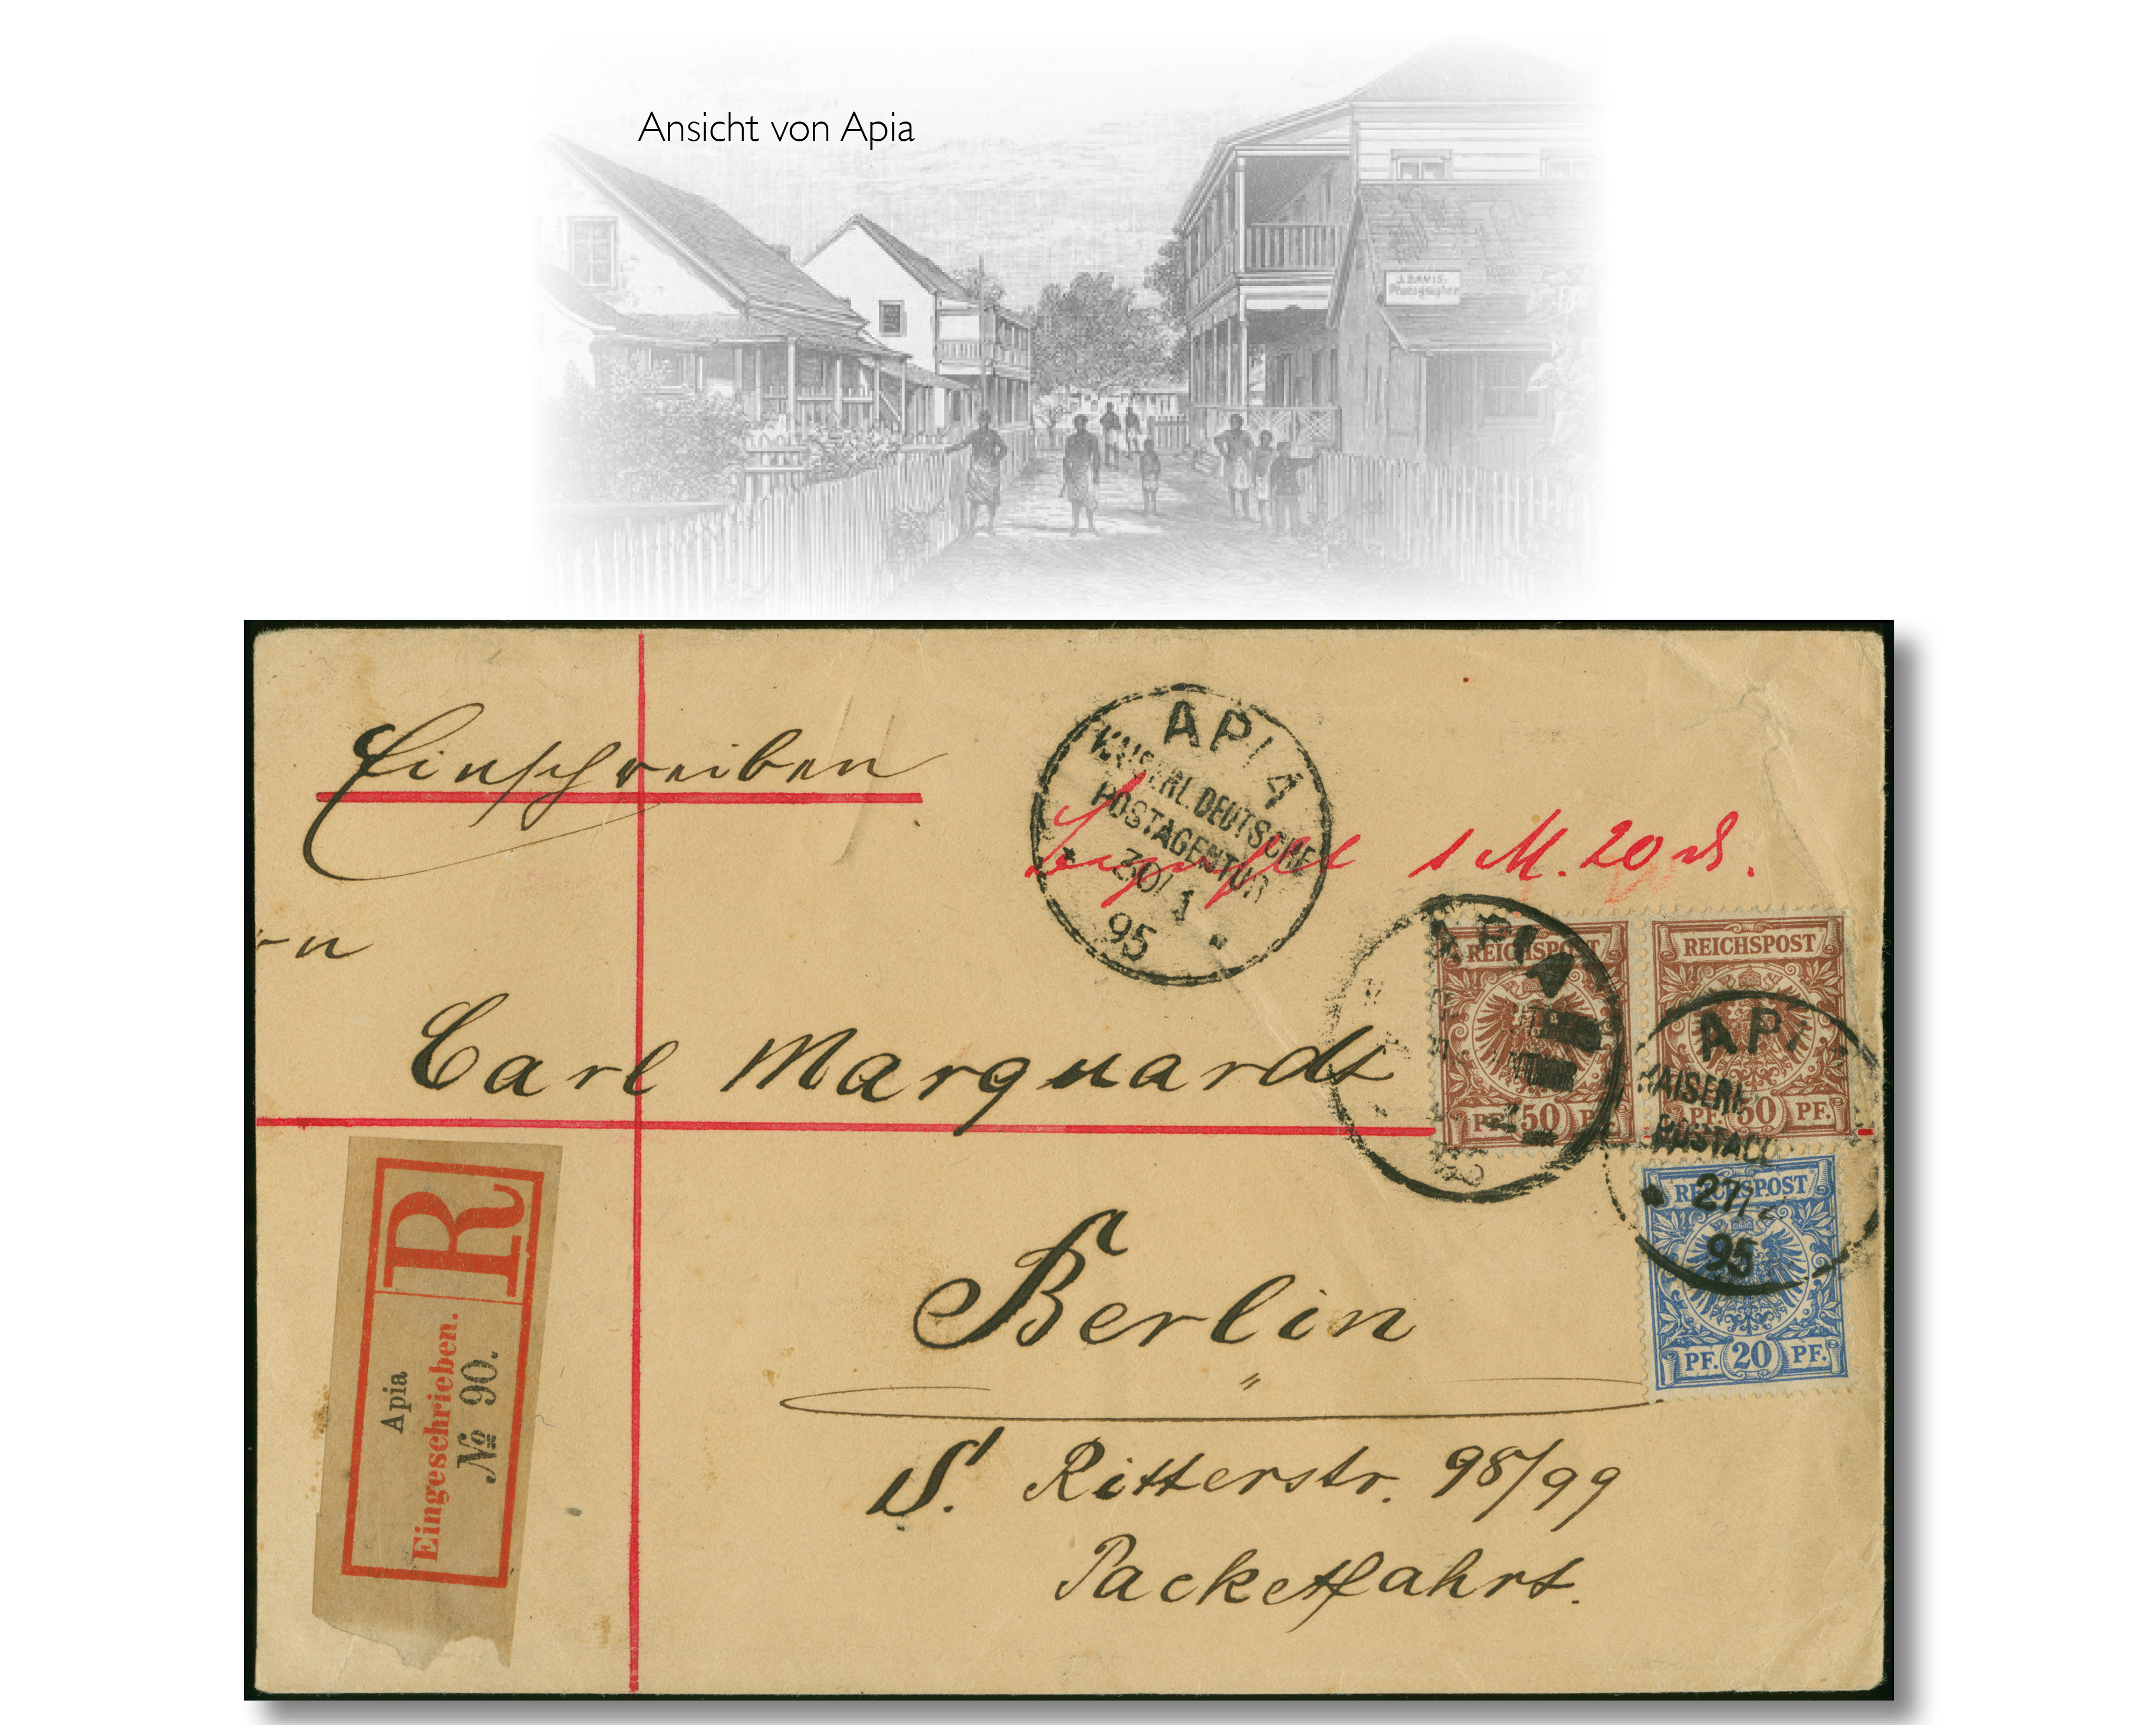 Ansicht von Apia
J. DAVIS.
Photographer
Einschreiben
APIA
KAISERL. DEUTSCHE
POSTAGENTUR
30/1
95
1 M. 20 Pf.
rn
Carl Marquardt
APIA
REICHSPOST
PF. 50 PF.
REICHSPOST
PF. 50 PF.
API
KAISERL
POSTAG
27/
95
REICHSPOST
PF. 20 PF.
R
Apia
Eingeschrieben.
№ 90.
Berlin
S. Ritterstr. 98/99
Packetfahrt.